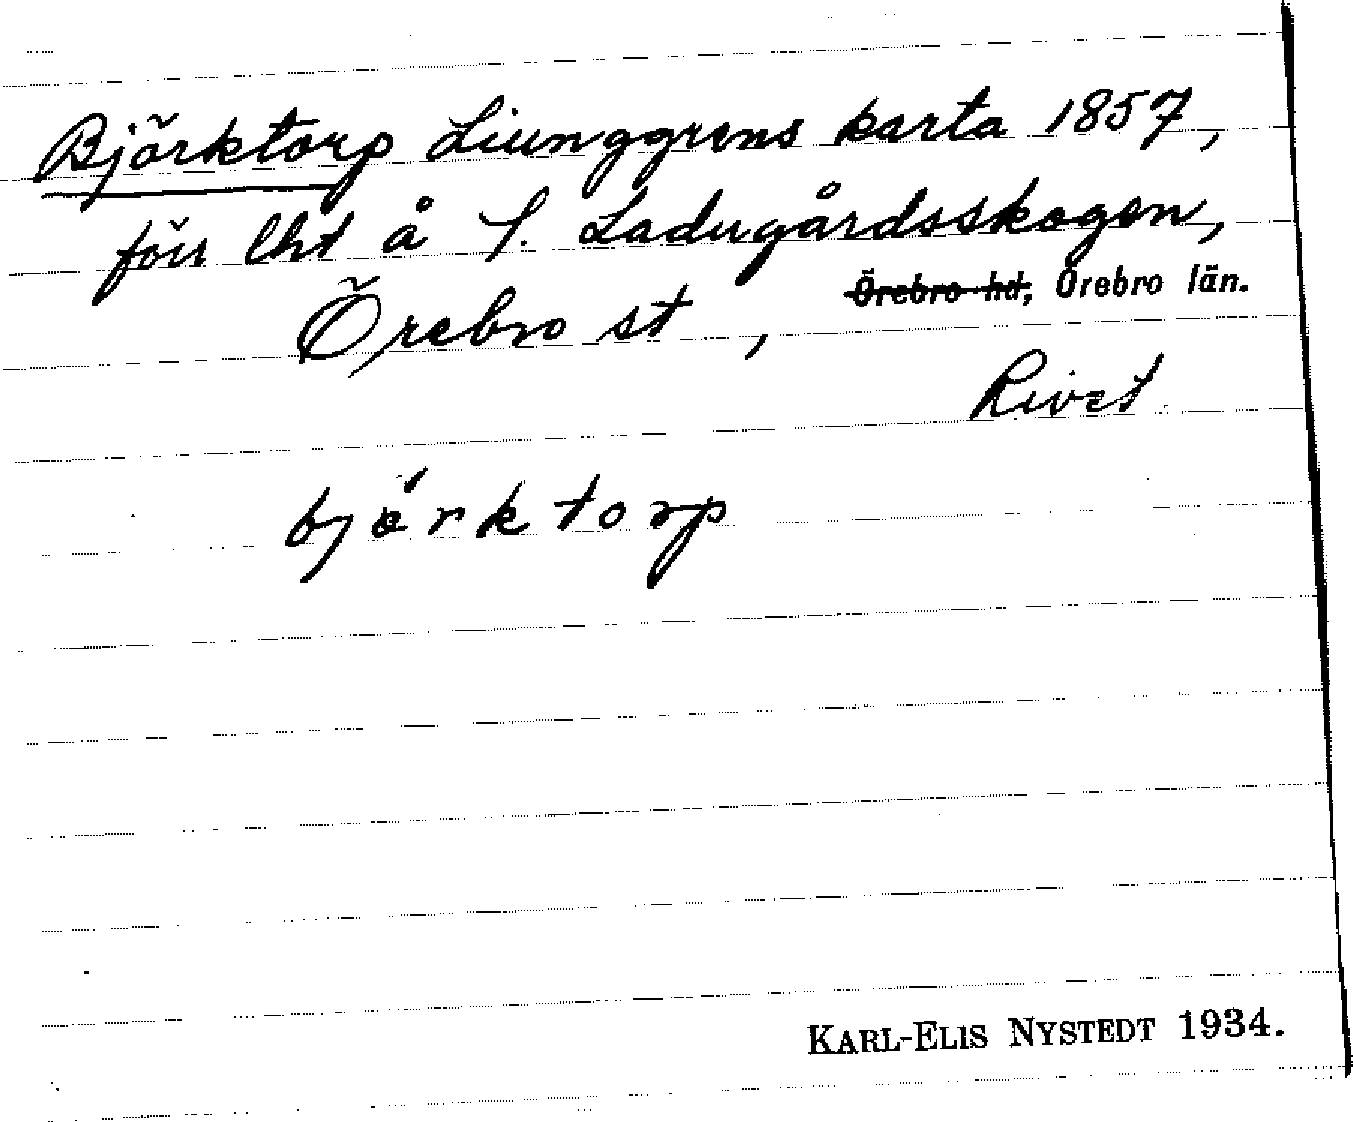 Björktorp Liunggrens karta 1857,
förr lht å S. Ladugårdsskogen,
Örebro st, Örebro hd, Örebro län.
Rivet.
björktorp
KARL-ELIS NYSTEDT 1934.